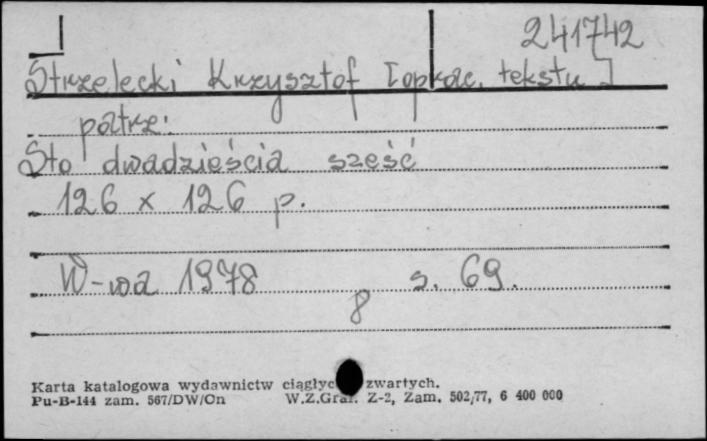 241742
Strzelecki Krzysztof [oprac. tekstu]
patrz:
Sto dwadzieścia sześć
126 x 126 p.
W-wa 1978 s. 69.
8
Karta katalogowa wydawnictw zwartych.
Pu-B-144 zam. 567/DW/On W.Z.Graf. Z-2, Zam. 502/77, 6 400 000